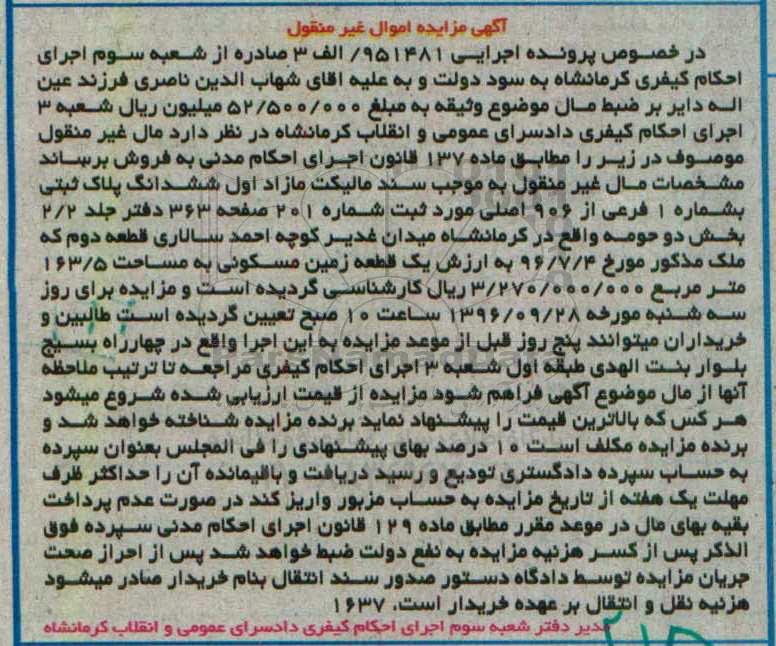 آگهی مزایده اموال غیر منقول
در خصوص پرونده اجرایی ۹۵۱۴۸۱/ الف ۳ صادره از شعبه سوم اجرای
احکام کیفری کرمانشاه به سود دولت و به علیه اقای شهاب الدین ناصری فرزند عین
اله دایر بر ضبط مال موضوع وثیقه به مبلغ ۵۲/۵۰۰/۰۰۰ میلیون ریال شعبه ۳
اجرای احکام کیفری دادسرای عمومی و انقلاب کرمانشاه در نظر دارد مال غیر منقول
موصوف در زیر را مطابق ماده ۱۳۷ قانون اجرای احکام مدنی به فروش برساند
مشخصات مال غیر منقول به موجب سند مالیکت مازاد اول ششدانگ پلاک ثبتی
بشماره ۱ فرعی از ۹۰۶ اصلی مورد ثبت شماره ۲۰۱ صفحه ۳۶۳ دفتر جلد ۲/۲
بخش دو حومه واقع در کرمانشاه میدان غدیر کوچه احمد سالاری قطعه دوم که
ملک مذکور مورخ ۹۶/۷/۴ به ارزش یک قطعه زمین مسکونی به مساحت ۱۶۳/۵
متر مربع ۳/۲۷۰/۰۰۰/۰۰۰ ریال کارشناسی گردیده است و مزایده برای روز
سه شنبه مورخه ۱۳۹۶/۰۹/۲۸ ساعت ۱۰ صبح تعیین گردیده است طالبین و
خریداران میتوانند پنج روز قبل از موعد مزایده به این اجرا واقع در چهارراه بسیج
بلوار بنت الهدی طبقه اول شعبه ۳ اجرای احکام کیفری مراجعه تا ترتیب ملاحظه
آنها از مال موضوع آگهی فراهم شود مزایده از قیمت ارزیابی شده شروع میشود
هر کس که بالاترین قیمت را پیشنهاد نماید برنده مزایده شناخته خواهد شد و
برنده مزایده مکلف است ۱۰ درصد بهای پیشنهادی را فی المجلس بعنوان سپرده
به حساب سپرده دادگستری تودیع و رسید دریافت و باقیمانده آن را حداکثر ظرف
مهلت یک هفته از تاریخ مزایده به حساب مزبور واریز کند در صورت عدم پرداخت
بقیه بهای مال در موعد مقرر مطابق ماده ۱۲۹ قانون اجرای احکام مدنی سپرده فوق
الذکر پس از کسر هزنیه مزایده به نفع دولت ضبط خواهد شد پس از احراز صحت
جریان مزایده توسط دادگاه دستور صدور سند انتقال بنام خریدار صادر میشود
هزنیه نقل و انتقال بر عهده خریدار است. ۱۶۳۷
مدیر دفتر شعبه سوم اجرای احکام کیفری دادسرای عمومی و انقلاب کرمانشاه